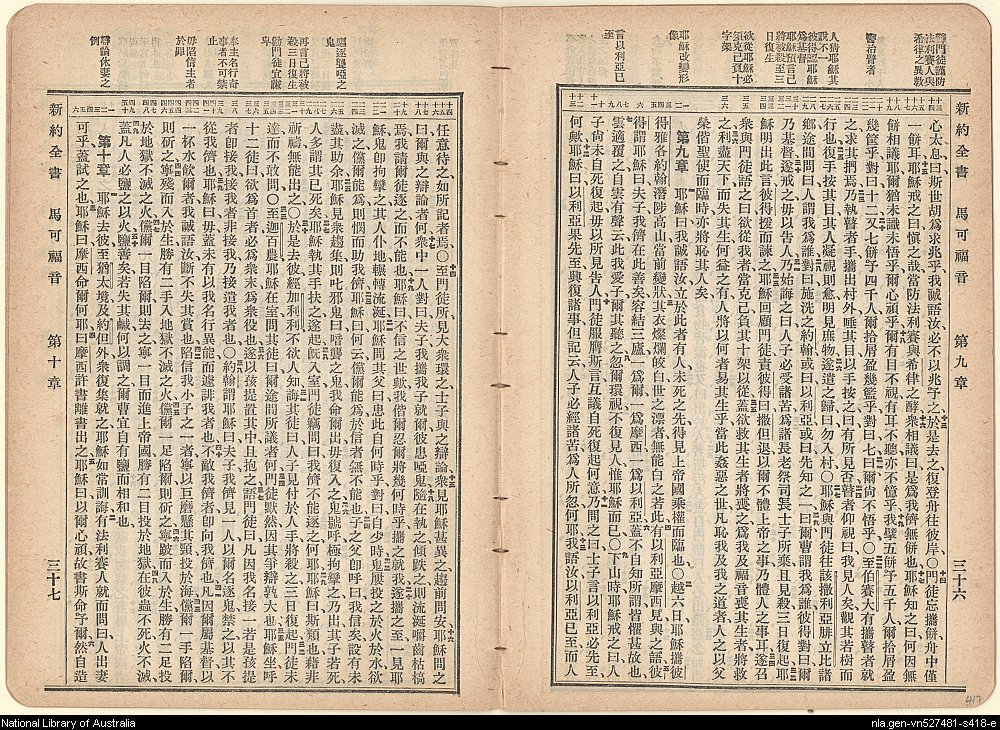 警門徒謹防
法利賽人與
希律之異教
醫治瞽者
人猜耶穌其
說不一
彼得認耶穌
爲基督
耶穌預言己
將被殺至三
日復生
欲從耶穌必
須克己負十
字架
耶穌改變形
像
言以利亞已
至
新約全書 馬可福音 第九章 三十六
心太息曰斯世胡爲求兆乎我誠語汝必不以兆予之於是去之復登舟往彼岸〇門徒忘攜餅舟中僅
一餅耳耶穌戒之曰愼之哉當防法利賽與希律之酵衆相議曰是爲我儕無餅也耶穌知之曰何因無
餅相議耶爾猶未識未悟乎爾心頑乎爾有目不視有耳不聽亦不憶乎我擘五餅予五千人爾拾屑盈
幾筐乎對曰十二又七餅予四千人爾拾屑盈幾籃乎對曰七曰爾尙不悟乎〇至伯賽大有攜瞽者就
之求其捫焉乃執瞽者手攜出村外唾其目以手按之曰有所見否瞽者仰視曰我見人矣觀其若樹而
行也復手按其目其人凝視則愈明見庶物遂遣之歸曰勿入村〇耶穌與門徒往該撒利亞腓立比諸
鄉途間問門徒曰人謂我爲誰對曰施洗之約翰或曰以利亞或曰先知之一曰爾曹謂我爲誰彼得對曰爾
乃基督遂戒之毋以告人乃始誨之曰人子必受諸苦爲諸長老祭司長士子所棄且見殺三日復起耶
穌明出此言彼得援而諫之耶穌回顧門徒責彼得曰撒但退以爾不體上帝之事乃體人之事耳遂召
衆與門徒語之曰欲從我者當克己負其十架以從蓋欲救其生者將喪之爲我及福音喪其生者將救
之利盡天下而失其生何益之有人將以何者易其生乎當此姦惡之世凡恥我及我之道者人子以父
榮偕聖使而臨時亦將恥其人矣
第九章 耶穌曰我誠語汝立於此者有人未死之先得見上帝國乘權而臨也〇越六日耶穌攜彼
得雅各約翰潛陟高山當前變狀其衣燦爛皎白世之漂者無能白之若此有以利亞摩西見與之語彼
得謂耶穌曰夫子我儕在此善矣容結三廬一爲爾一爲摩西一爲以利亞蓋不自知所謂皆懼甚故也
雲適覆之自雲有聲云此我愛子爾其聽之忽爾環視不復見人惟耶穌而已〇下山時耶穌戒之曰人
子尙未自死復起毋以所見告人門徒服膺斯言互議自死復起何意乃問之曰士子言以利亞必先至
何歟耶穌曰以利亞果先至興復諸事但記云人子必經諸苦爲人所忽何耶我語汝以利亞已至而人
驅逐聾啞之
鬼
再言己將被
殺三日復生
勸門徒宜謙
卑
奉主名行奇
事者不可禁
止
毋陷信主者
於罪
辯論休妻之
例
任意待之如所記者焉〇至門徒所見大衆環之士子與之辯論衆見耶穌甚異之趨前問安耶穌問之
曰爾與之辯論者何衆中一人對曰夫子我攜我子就爾彼患啞鬼隨在執之傾跌之則流涎嚼齒枯槁
焉我請爾徒逐之而不能也耶穌曰不信之世歟我偕爾忍爾將幾何時乎攜之就我遂攜之至一見耶
穌鬼卽拘攣之其人仆地輾轉流涎耶穌問其父曰患此自何時乎對曰自少時鬼屢投之於火於水欲
滅之儻爾能爲則憫而助我耶穌曰爾儻能爲於信者無不能也子之父卽呼曰我信矣設有未
盡其助余耶穌見衆趨集則叱邪鬼曰喑聾之鬼我命爾出毋復入之鬼號呼極拘攣之乃出其子若死
人多謂其已死矣耶穌執其手扶之遂起旣入室門徒竊問曰我儕不能逐之何耶耶穌曰斯類也藉非
祈禱無能出之〇於是去彼經加利利不欲人知誨其徒曰人子見付於人手將殺之三日復起門徒未
達而不敢問〇至迦百農耶穌在室問其徒曰爾途間所議者何門徒默然因其爭辯孰大也耶穌坐呼
十二徒曰欲爲首者必爲衆末爲衆役也遂以孩提置其中且抱之語門徒曰凡因我名接一若是孩提
者卽接我接我者非接我乃接遣我者也〇約翰謂耶穌曰夫子我儕見一人以爾名逐鬼禁之以其不
從我儕也耶穌曰毋蓋未有以我名行異能而遽誹我者也不敵我儕者卽向我儕也凡因爾屬基督以
一杯水飲爾者我誠語汝斷不失其賞也陷信我小子之一者寧以巨磨懸其頸投於海儻爾一手陷爾
則斫之寧殘而入於生勝有二手入地獄不滅之火儻爾一足陷爾則斫之寧跛而入於生勝有二足投
於地獄不滅之火儻爾一目陷爾則去之寧一目而進上帝國勝有二目投於地獄在彼蟲不死火不滅
蓋凡人必鹽之以火鹽善矣若失其鹹何以調之爾曹宜自有鹽而相和也
第十章 耶穌去彼至猶太境及約但外衆復集就之耶穌如常訓誨有法利賽人就而問曰人出妻
可乎蓋試之也耶穌曰摩西命爾何耶曰摩西許書離書出之耶穌曰以爾心頑故書斯命予爾然自造
新約全書 馬可福音 第十章 三十七
417
National Library of Australia
nla.gen-vn527481-s418-e